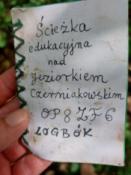 Ścieżka
edukacyjna
nad
jeziorkiem
Czerniakowskim
OP8ZF6
LOGBÓK